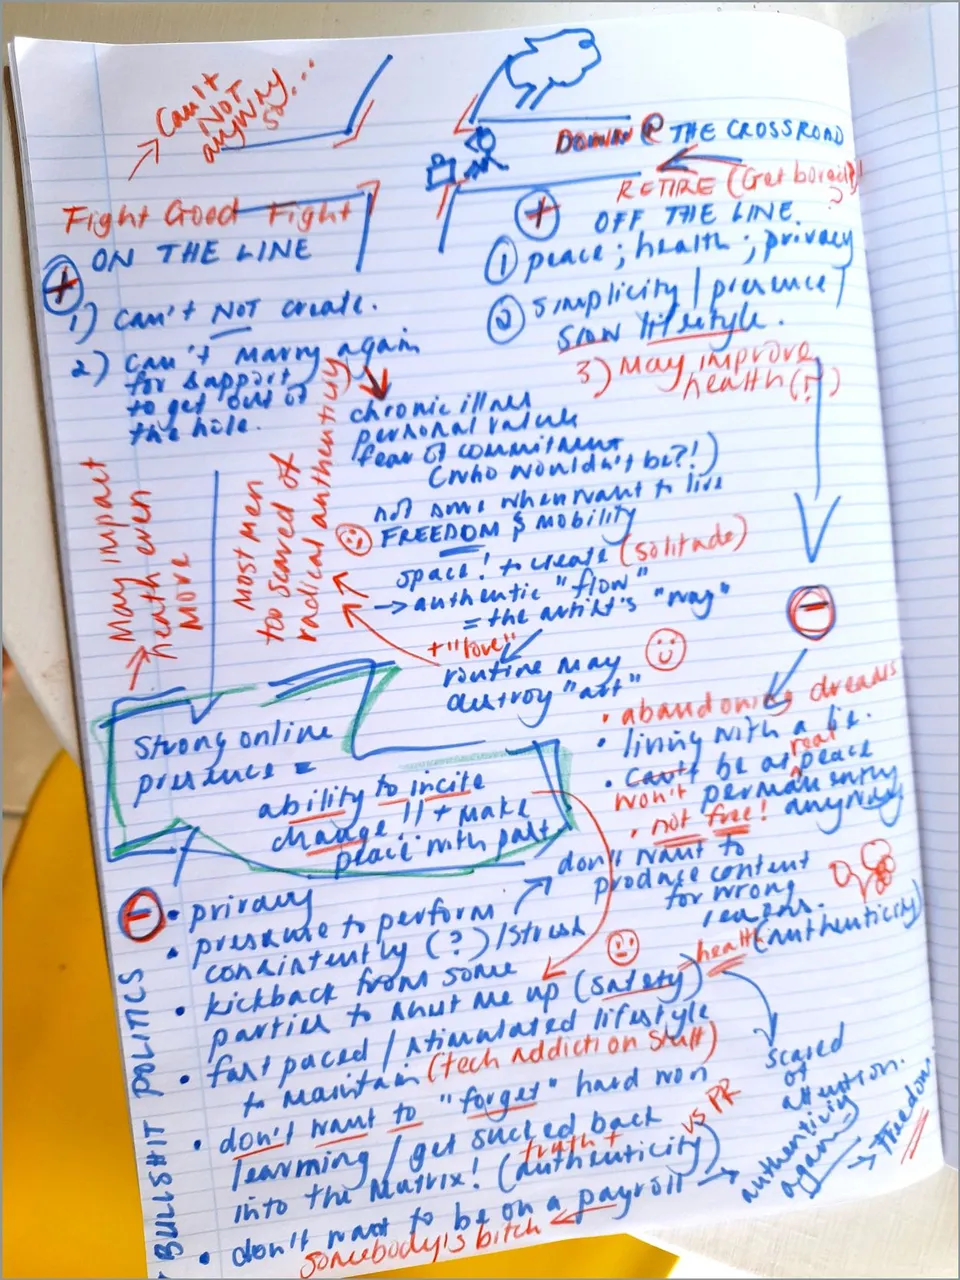 Can't
NOT
anyway
so...
DOMIN @ THE CROSSROAD
RETIRE (Get bored?)!
?
Fight Good Fight
ON THE LINE
+
1) can't NOT create.
2) can't marry again
for support
to get out of
the hole.
+
OFF THE LINE.
① peace; health; privacy
② simplicity / presence /
slow lifestyle.
3) May improve
health (?)
chronic illness
personal values
fear of commitment
(who wouldn't be?!)
not same when want to live
FREEDOM & mobility
space! to create (solitude)
→ authentic "flow"
= the artist's "way"
+ "love"
routine may
destroy "art"
May impact
heath even
more
most men
too scared of
radical authenticity)
Strong online
presence =
ability to incite
change !! + make
peace with past
−
• abandoning dreams
• living with a lie.
real
• can't be at peace
won't permanently
• not free! anyway
−
• privacy
• pressure to perform
consistently (?) / stress
don't want to
produce content
for wrong
reasons.
(authenticity)
health
• kickback from some
parties to shut me up (safety)
• fast paced / stimulated lifestyle
to maintain (tech addiction stuff)
• don't want to "forget" hard won
learning / get sucked back
truth + vs PR
into the Matrix! (authenticity)
• don't want to be on a payroll
somebody's bitch
BULLSHIT POLITICS
scared
of
attention.
authenticity
again → Freedom